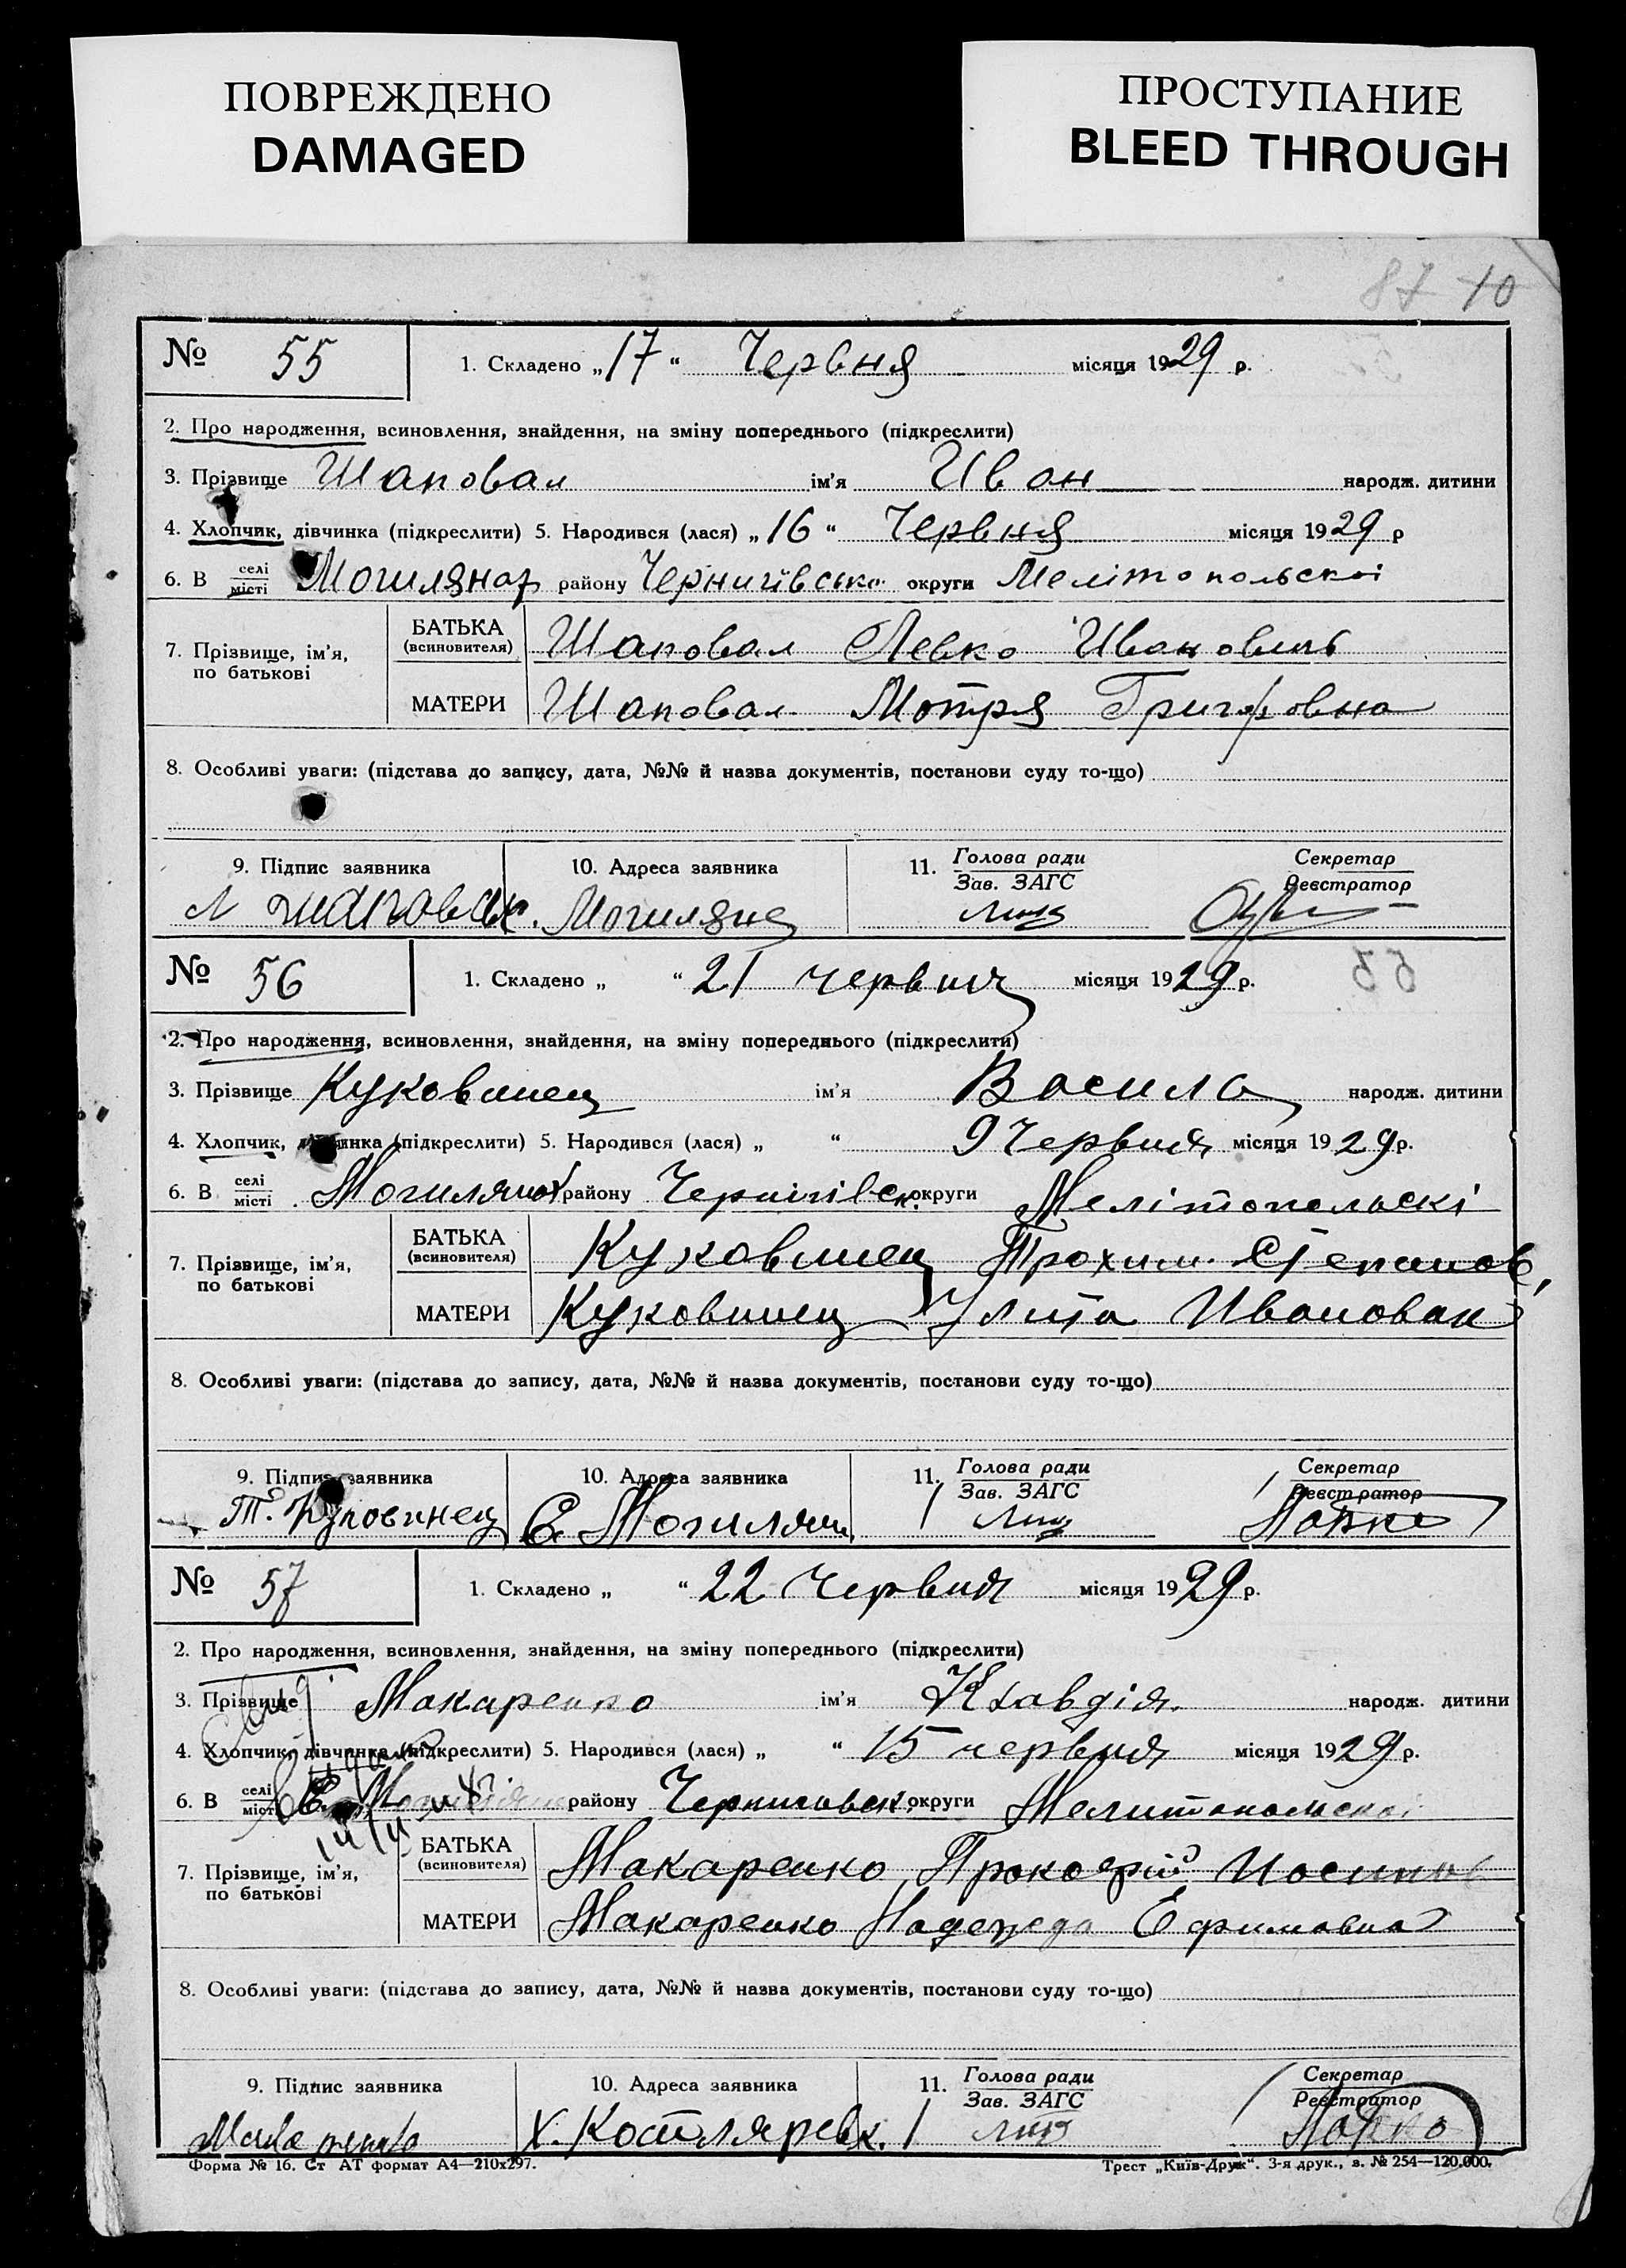 ПОВРЕЖДЕНО
DAMAGED
ПРОСТУПАНИЕ
BLEED THROUGH
87 10
№ 55 1. Складено „17“ Червня місяця 1929 р.
2. Про народження, всиновлення, знайдення, на зміну попереднього (підкреслити)
3. Прізвище Шаповал ім'я Иван народж. дитини
4. Хлопчик, дівчинка (підкреслити) 5. Народився (лася) „16“ Червня місяця 1929 р
6. В селі місті Могилянах району Чернигівсько округи Мелітопольскоі
7. Прізвище, ім'я, по батькові
БАТЬКА (всиновителя) Шаповал Левко Ивановичь
МАТЕРИ Шаповал Мотря Григоровна
8. Особливі уваги: (підстава до запису, дата, №№ й назва документів, постанови суду то-що)
9. Підпис заявника 10. Адреса заявника 11. Голова ради Зав. ЗАГС Секретар Реєстратор
Л Шаповал Могиляне
№ 56 1. Складено „ “ 21 червня місяця 1929 р.
2. Про народження, всиновлення, знайдення, на зміну попереднього (підкреслити)
3. Прізвище Куковинец ім'я Василь народж. дитини
4. Хлопчик, дівчинка (підкреслити) 5. Народився (лася) „ “ 9 Червня місяця 1929 р.
6. В селі місті Могилянах району Чернигівск. округи Мелітопольскі
7. Прізвище, ім'я, по батькові
БАТЬКА (всиновителя) Куковинец Трохим Степанов,
МАТЕРИ Куковинец Улита Ивановна
8. Особливі уваги: (підстава до запису, дата, №№ й назва документів, постанови суду то-що)
9. Підпис заявника 10. Адреса заявника 11. Голова ради Зав. ЗАГС Секретар Реєстратор
Т. Куковинец С. Могиляни
№ 57 1. Складено „ “ 22 Червня місяця 1929 р.
2. Про народження, всиновлення, знайдення, на зміну попереднього (підкреслити)
3. Прізвище Макаренко ім'я Клавдія народж. дитини
4. Хлопчик, дівчинка (підкреслити) 5. Народився (лася) „ “ 15 червня місяця 1929 р.
6. В селі місті району Черниговск. округи Мелитопольскоі
7. Прізвище, ім'я, по батькові
БАТЬКА (всиновителя) Макаренко Прокофій Иосипов
МАТЕРИ Макаренко Надежда Ефимовна
8. Особливі уваги: (підстава до запису, дата, №№ й назва документів, постанови суду то-що)
9. Підпис заявника 10. Адреса заявника 11. Голова ради Зав. ЗАГС Секретар Реєстратор
Макаренко Х. Костляревк.
Форма № 16. Ст АТ формат А4—210х297.
Трест „Київ-Друк“. 3-я друк., з. № 254—120.000.